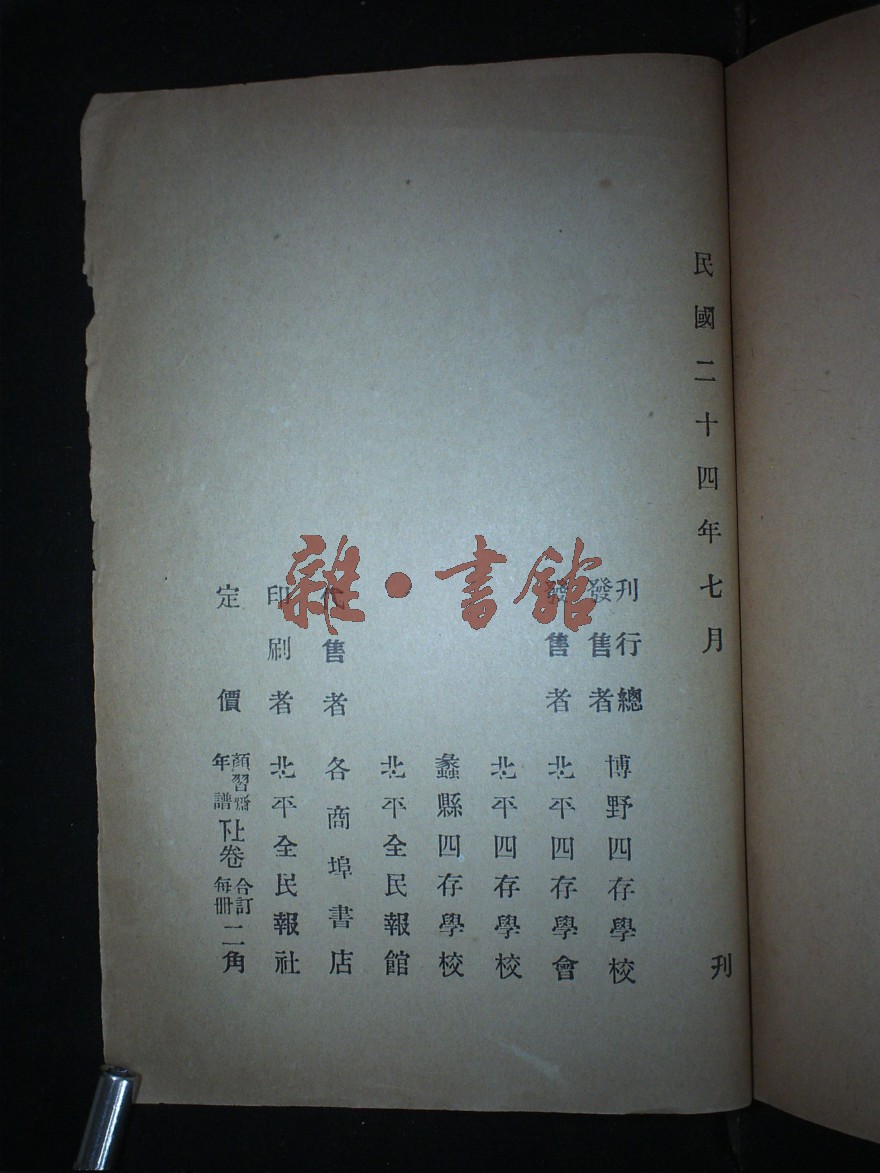 民國二十四年七月 刊
刊行總
發售者 博野四存學校
發售者 北平四存學會
北平四存學校
蠡縣四存學校
北平全民報館
代售者 各商埠書店
印刷者 北平全民報社
定價 顏習齋年譜上下卷合訂每冊二角
雜·書館